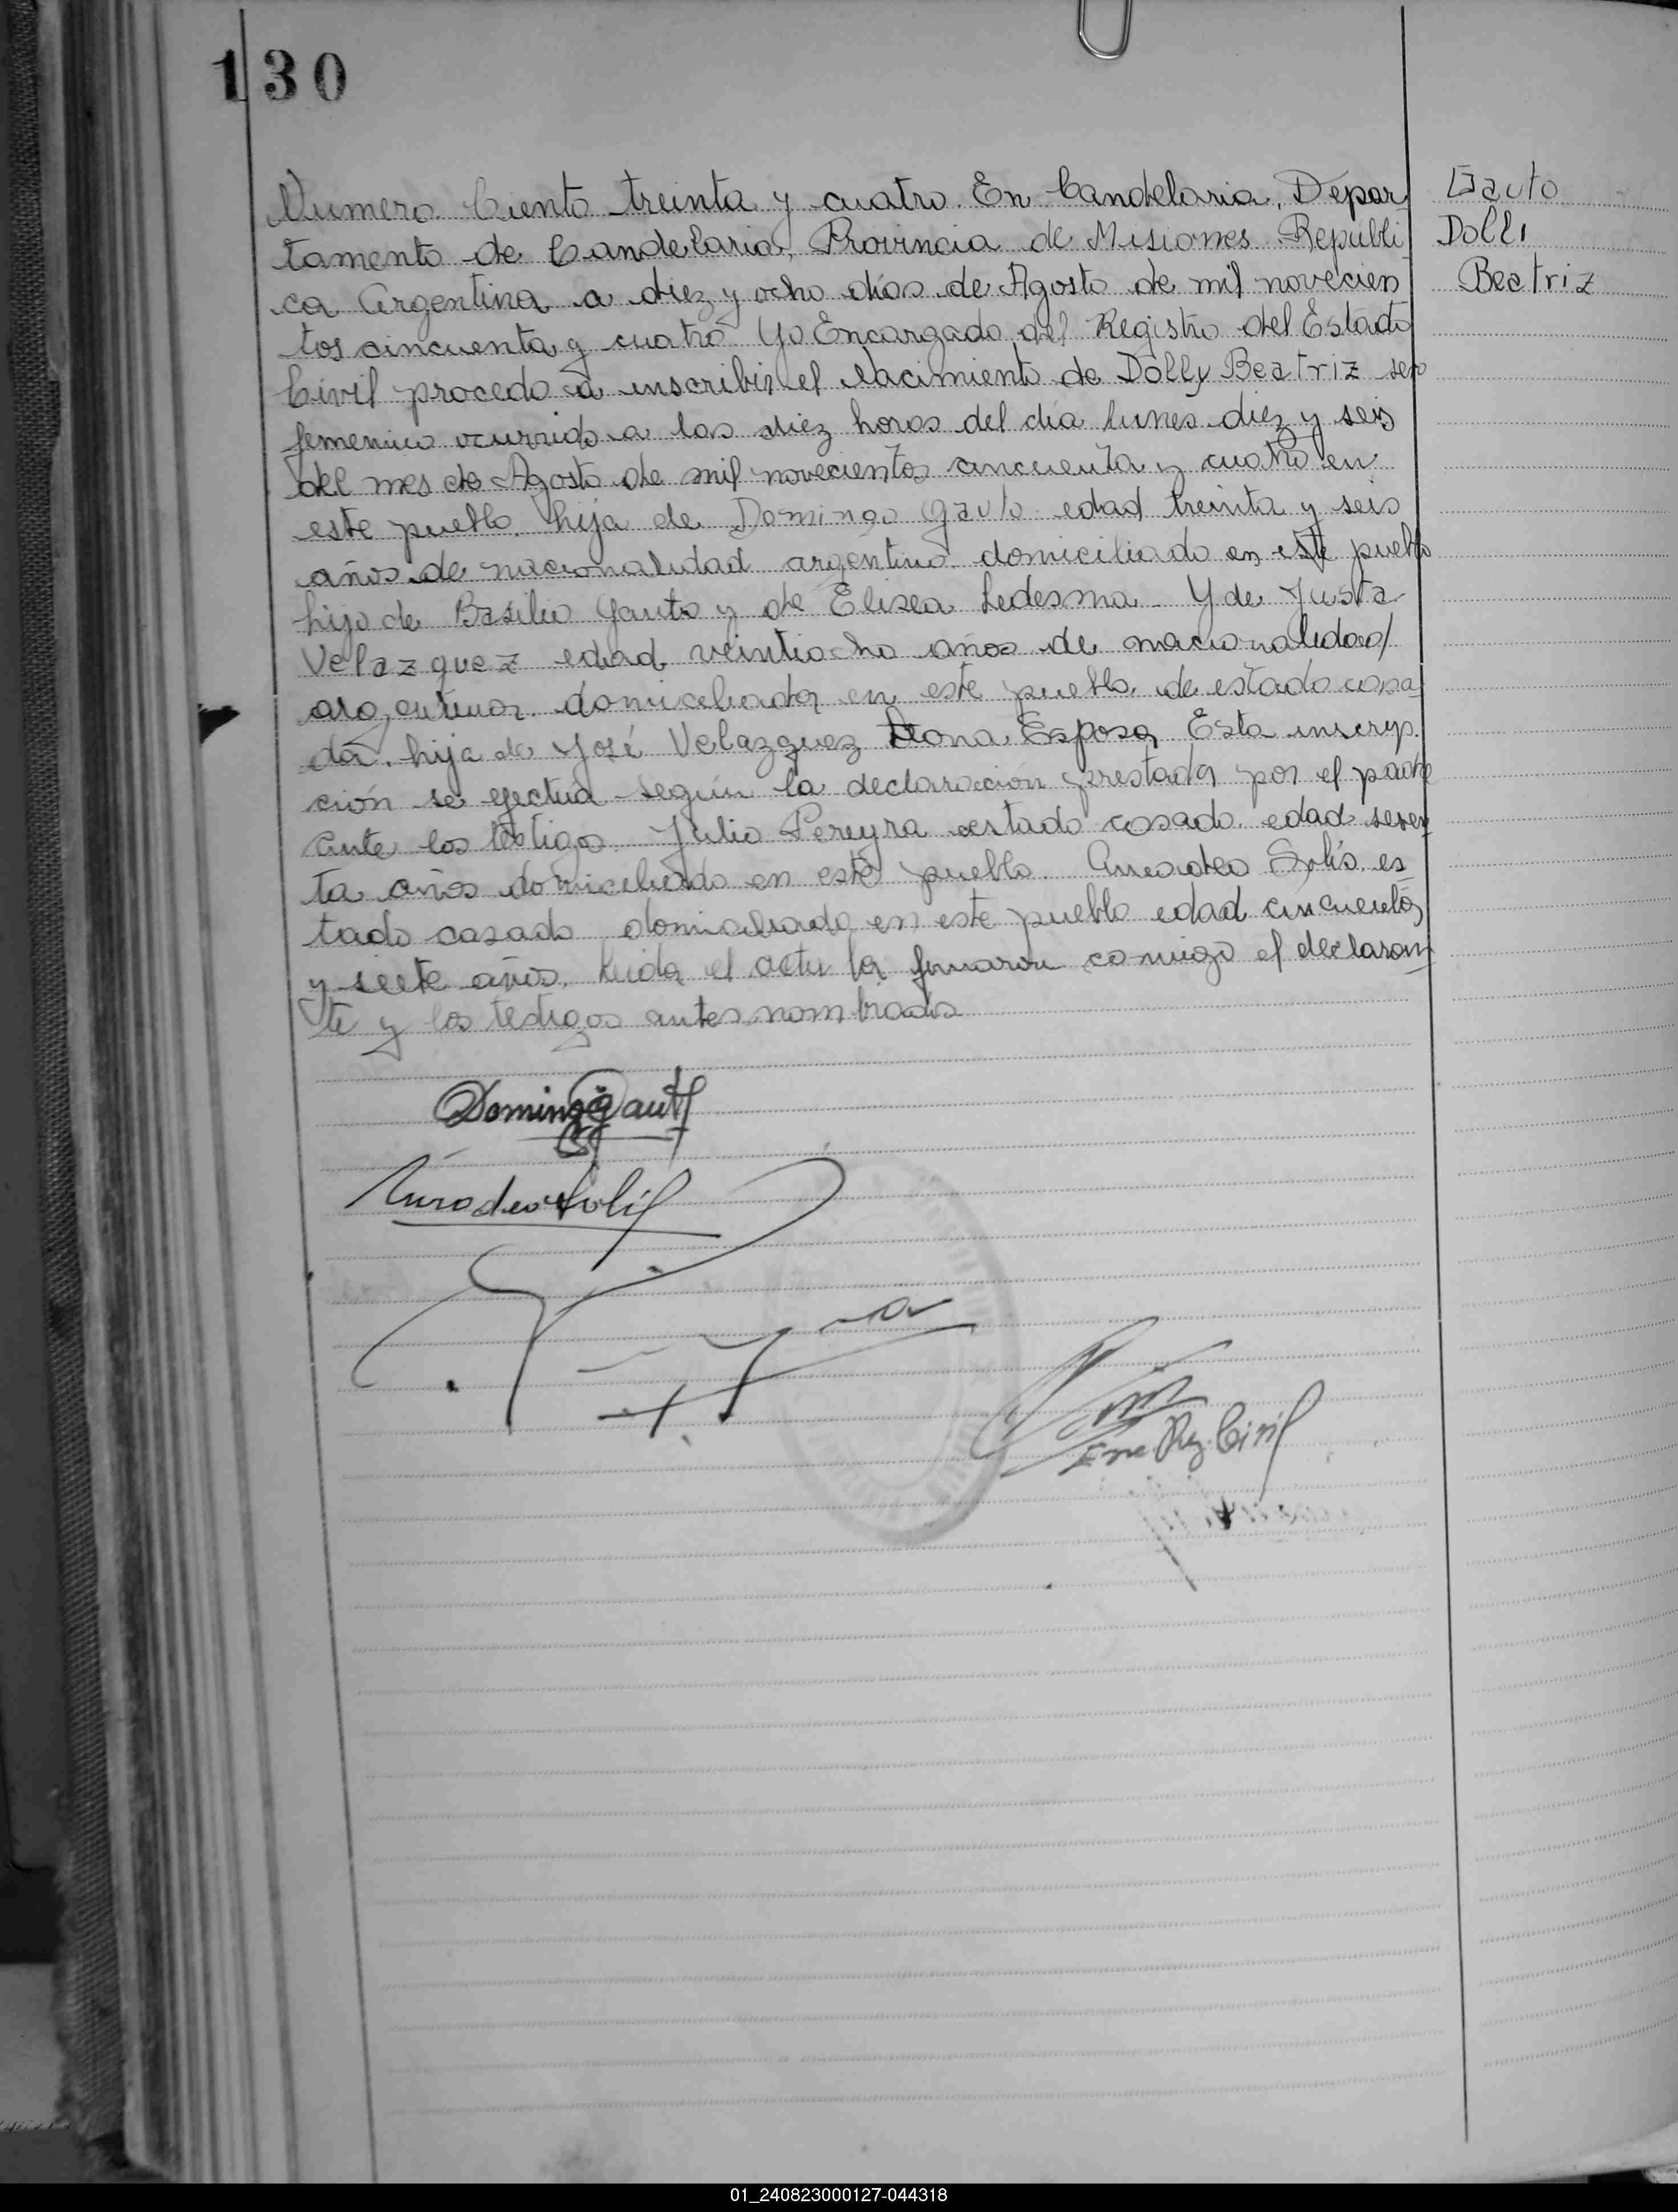 130
Numero Ciento treinta y cuatro. En Candelaria, Depar
tamento de Candelaria, Provincia de Misiones Republi
ca Argentina a diez y ocho dias de Agosto de mil novecien
tos cincuenta y cuatro Yo Encargado del Registro del Estado
Civil procedo a inscribir el Nacimiento de Dolly Beatriz sexo
femenino ocurrido a las diez horas del dia lunes diez y seis
del mes de Agosto de mil novecientos cincuenta y cuatro en
este pueblo. hija de Domingo Gauto edad treinta y seis
años de nacionalidad argentino domiciliado en este pueblo
hijo de Basilio Gauto y de Elisea Ledesma. Y de Justa
Velazquez edad veintiocho años de nacionalidad
argentina domiciliada en este pueblo de estado casa
da. hija de José Velazquez Esposa Esta inscrip
ción se efectúa según la declaración prestada por el padre
ante los testigos Julio Pereyra estado casado. edad seten
ta años domiciliado en este pueblo. Amadeo Solís. es
tado casado domiciliado en este pueblo edad cincuenta
y siete años. Leida el acta la firmaron conmigo el declaran
te y los testigos antes nombrados
Gauto
Dolli
Beatriz
Domingo Gauto
Amadeo Solís
Enc. Reg. Civil
01_240823000127-044318